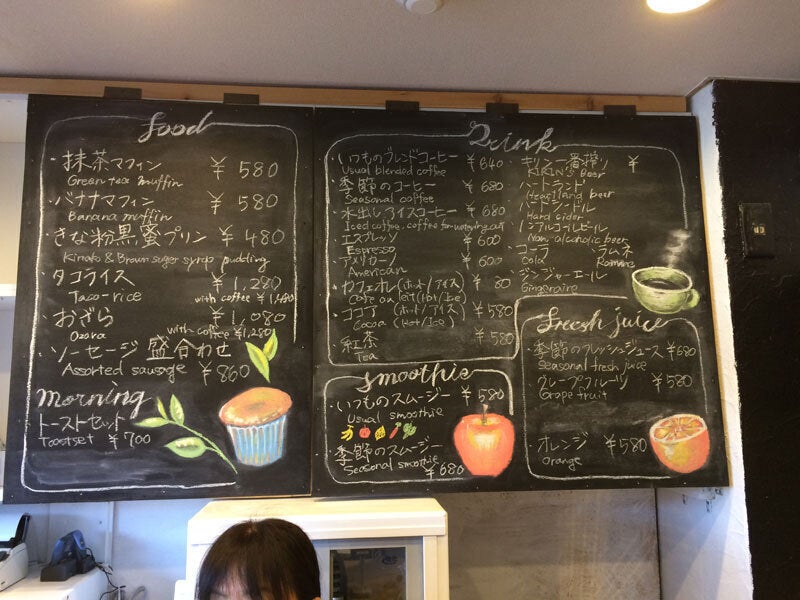 food
・抹茶マフィン ¥580
Green tea muffin
・バナナマフィン ¥580
Banana muffin
・きな粉黒蜜プリン ¥480
Kinako & Brown suger syrop pudding
・タコライス ¥1,280
Taco-rice with coffee ¥1,480
・おざら ¥1,080
Ozara with coffee ¥1,280
・ソーセージ盛合わせ
Assorted sausage ¥860
morning
トーストセット
Toastset ¥700
Drink
・いつものブレンドコーヒー ¥640
Usual blended coffee
・季節のコーヒー ¥680
Seasonal coffee
・水出しアイスコーヒー ¥680
Iced coffee, coffee
・エスプレッソ ¥600
Espresso
・アメリカーノ ¥600
American
・カフェオレ(ホット/アイス)
Cafe au lait (Hot/Ice)
・ココア(ホット/アイス) ¥580
Cocoa (Hot/Ice)
・紅茶 ¥580
Tea
・キリン一番搾り ¥
KIRIN'S Beer
・ハートランド
Heartland beer
・ハードシードル
Hard cider
・ノンアルコールビール
Non-alcoholic beer
・コーラ ラムネ
Cola Ramune
・ジンジャーエール
smoothie
・いつものスムージー ¥580
Usual smoothie
・季節のスムージー
Seasonal smoothie ¥680
fresh juice
・季節のフレッシュジュース ¥680
Seasonal fresh juice
・グレープフルーツ ¥580
Grape fruit
・オレンジ ¥580
Orange